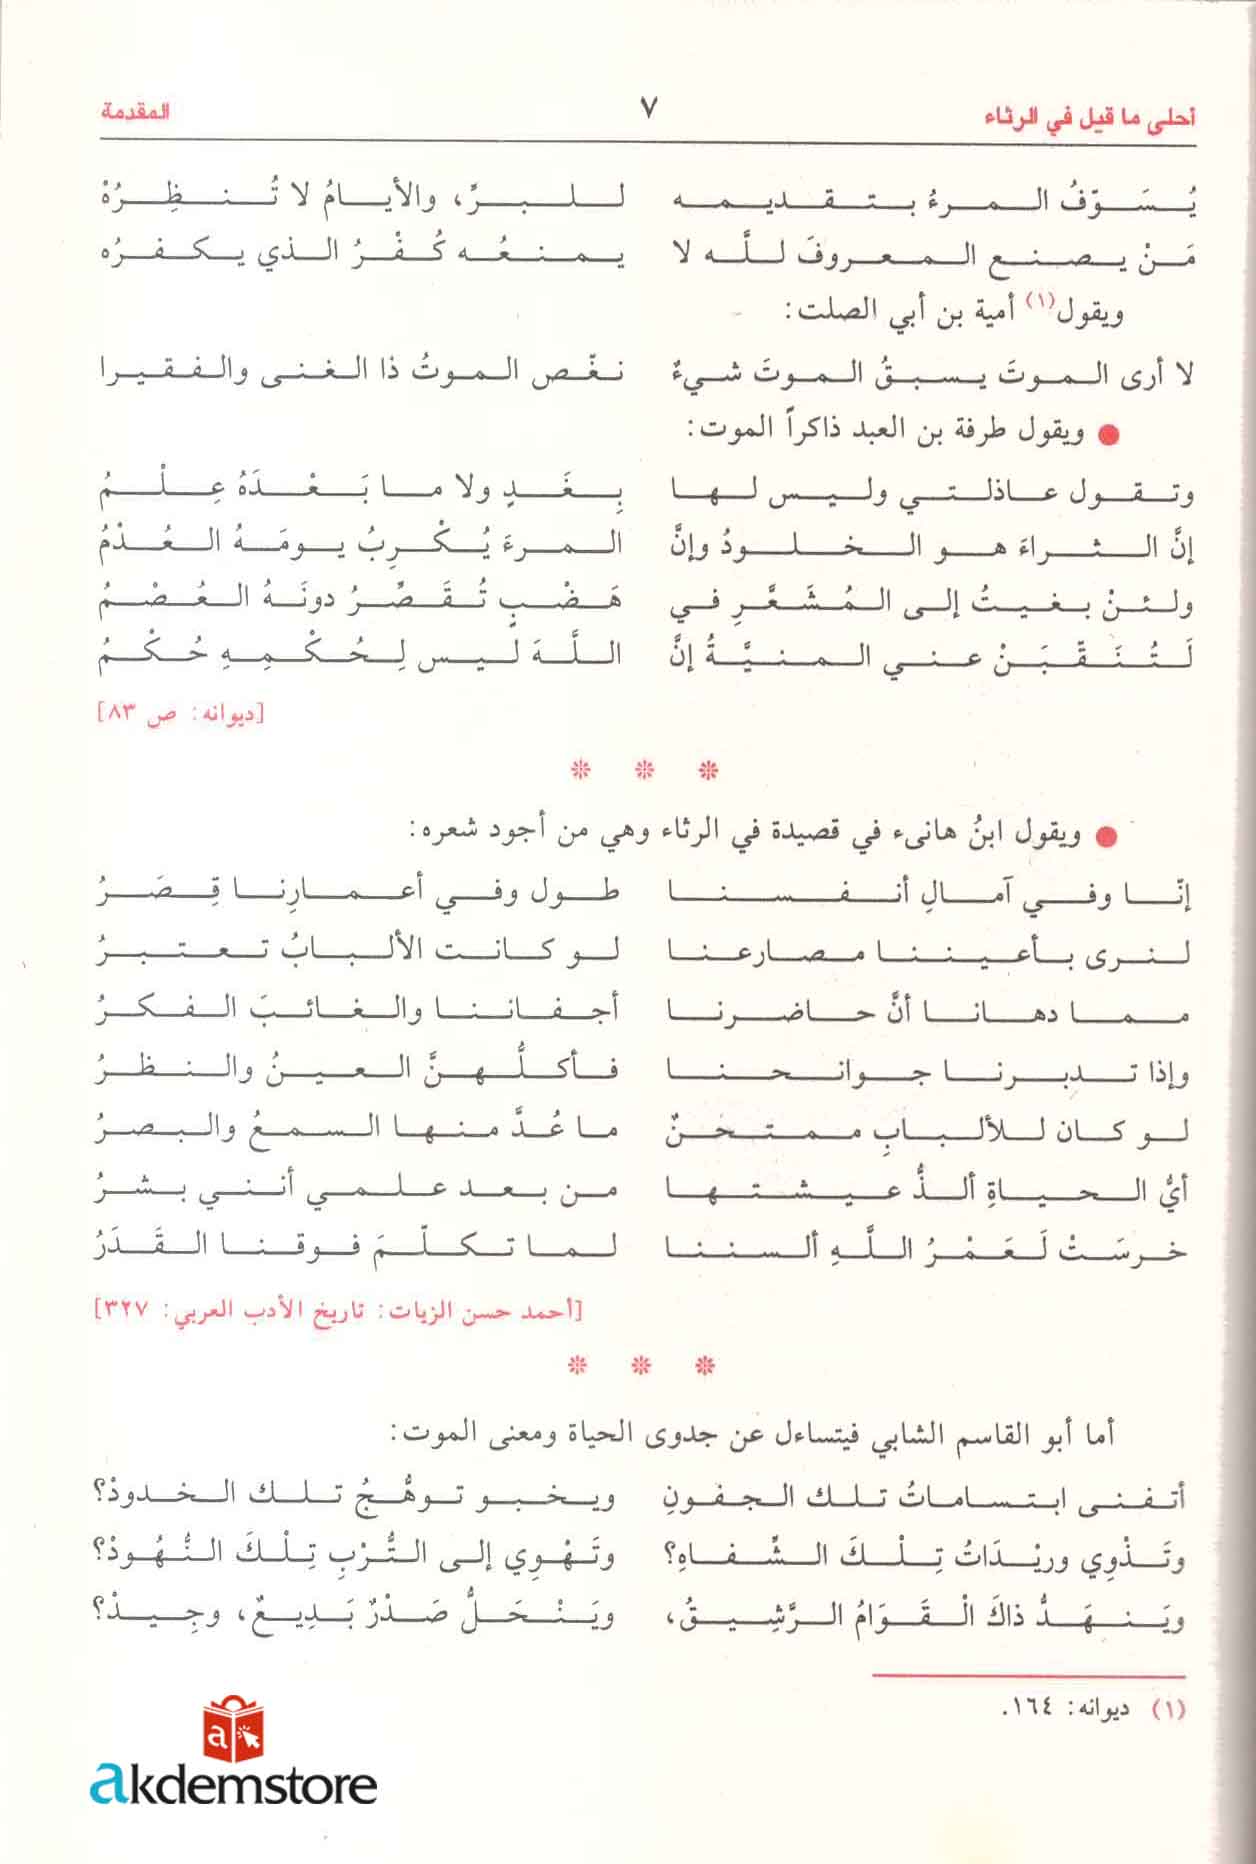 أحلى ما قيل في الرثاء ٧ المقدمة
يُسَوِّفُ المرءُ بتقديمه للبرِّ، والأيامُ لا تُنظِرُهْ
مَنْ يصنع المعروفَ للَّه لا يمنعُه كُفْرُ الذي يكفرُه
ويقول(١) أمية بن أبي الصلت:
لا أرى الموتَ يسبقُ الموتَ شيءٌ نغّص الموتُ ذا الغنى والفقيرا
● ويقول طرفة بن العبد ذاكراً الموت:
وتقول عاذلتي وليس لها بِغَدٍ ولا ما بَعْدَهُ عِلْمُ
إنَّ الثراءَ هو الخلودُ وإنَّ المرءَ يُكْرِبُ يومَهُ العُدْمُ
ولئنْ بغيتُ إلى المُشَعَّرِ في هَضْبٍ تُقَصِّرُ دونَهُ العُصْمُ
لَتُنَقِّبَنْ عني المنيَّةُ إنَّ اللَّهَ ليس لِحُكْمِهِ حُكْمُ
[ديوانه: ص ٨٣]
* * *
● ويقول ابنُ هانىء في قصيدة في الرثاء وهي من أجود شعره:
إنّا وفي آمالِ أنفسنا طول وفي أعمارِنا قِصَرُ
لنرى بأعيننا مصارعنا لو كانت الألبابُ تعتبرُ
مما دهانا أنَّ حاضرنا أجفاننا والغائبَ الفكرُ
وإذا تدبرنا جوانحنا فأكلُّهنَّ العينُ والنظرُ
لو كان للألبابِ ممتحنٌ ما عُدَّ منها السمعُ والبصرُ
أيُّ الحياةِ ألذُّ عيشتها من بعد علمي أنني بشرُ
خرسَتْ لَعَمْرُ اللَّهِ ألسننا لما تكلّمَ فوقنا القَدَرُ
[أحمد حسن الزيات: تاريخ الأدب العربي: ٣٢٧]
* * *
أما أبو القاسم الشابي فيتساءل عن جدوى الحياة ومعنى الموت:
أتفنى ابتساماتُ تلك الجفونِ ويخبو توهُّجُ تلك الخدودْ؟
وتَذْوِي وريْدَاتُ تِلْكَ الشِّفاهِ؟ وتَهْوِي إلى التُّرْبِ تِلْكَ النُّهُودْ؟
ويَنهَدُّ ذاكَ الْقَوَامُ الرَّشِيقُ، ويَنْحَلُّ صَدْرٌ بَدِيعٌ، وجِيدْ؟
(١) ديوانه: ١٦٤.
a
akdemstore